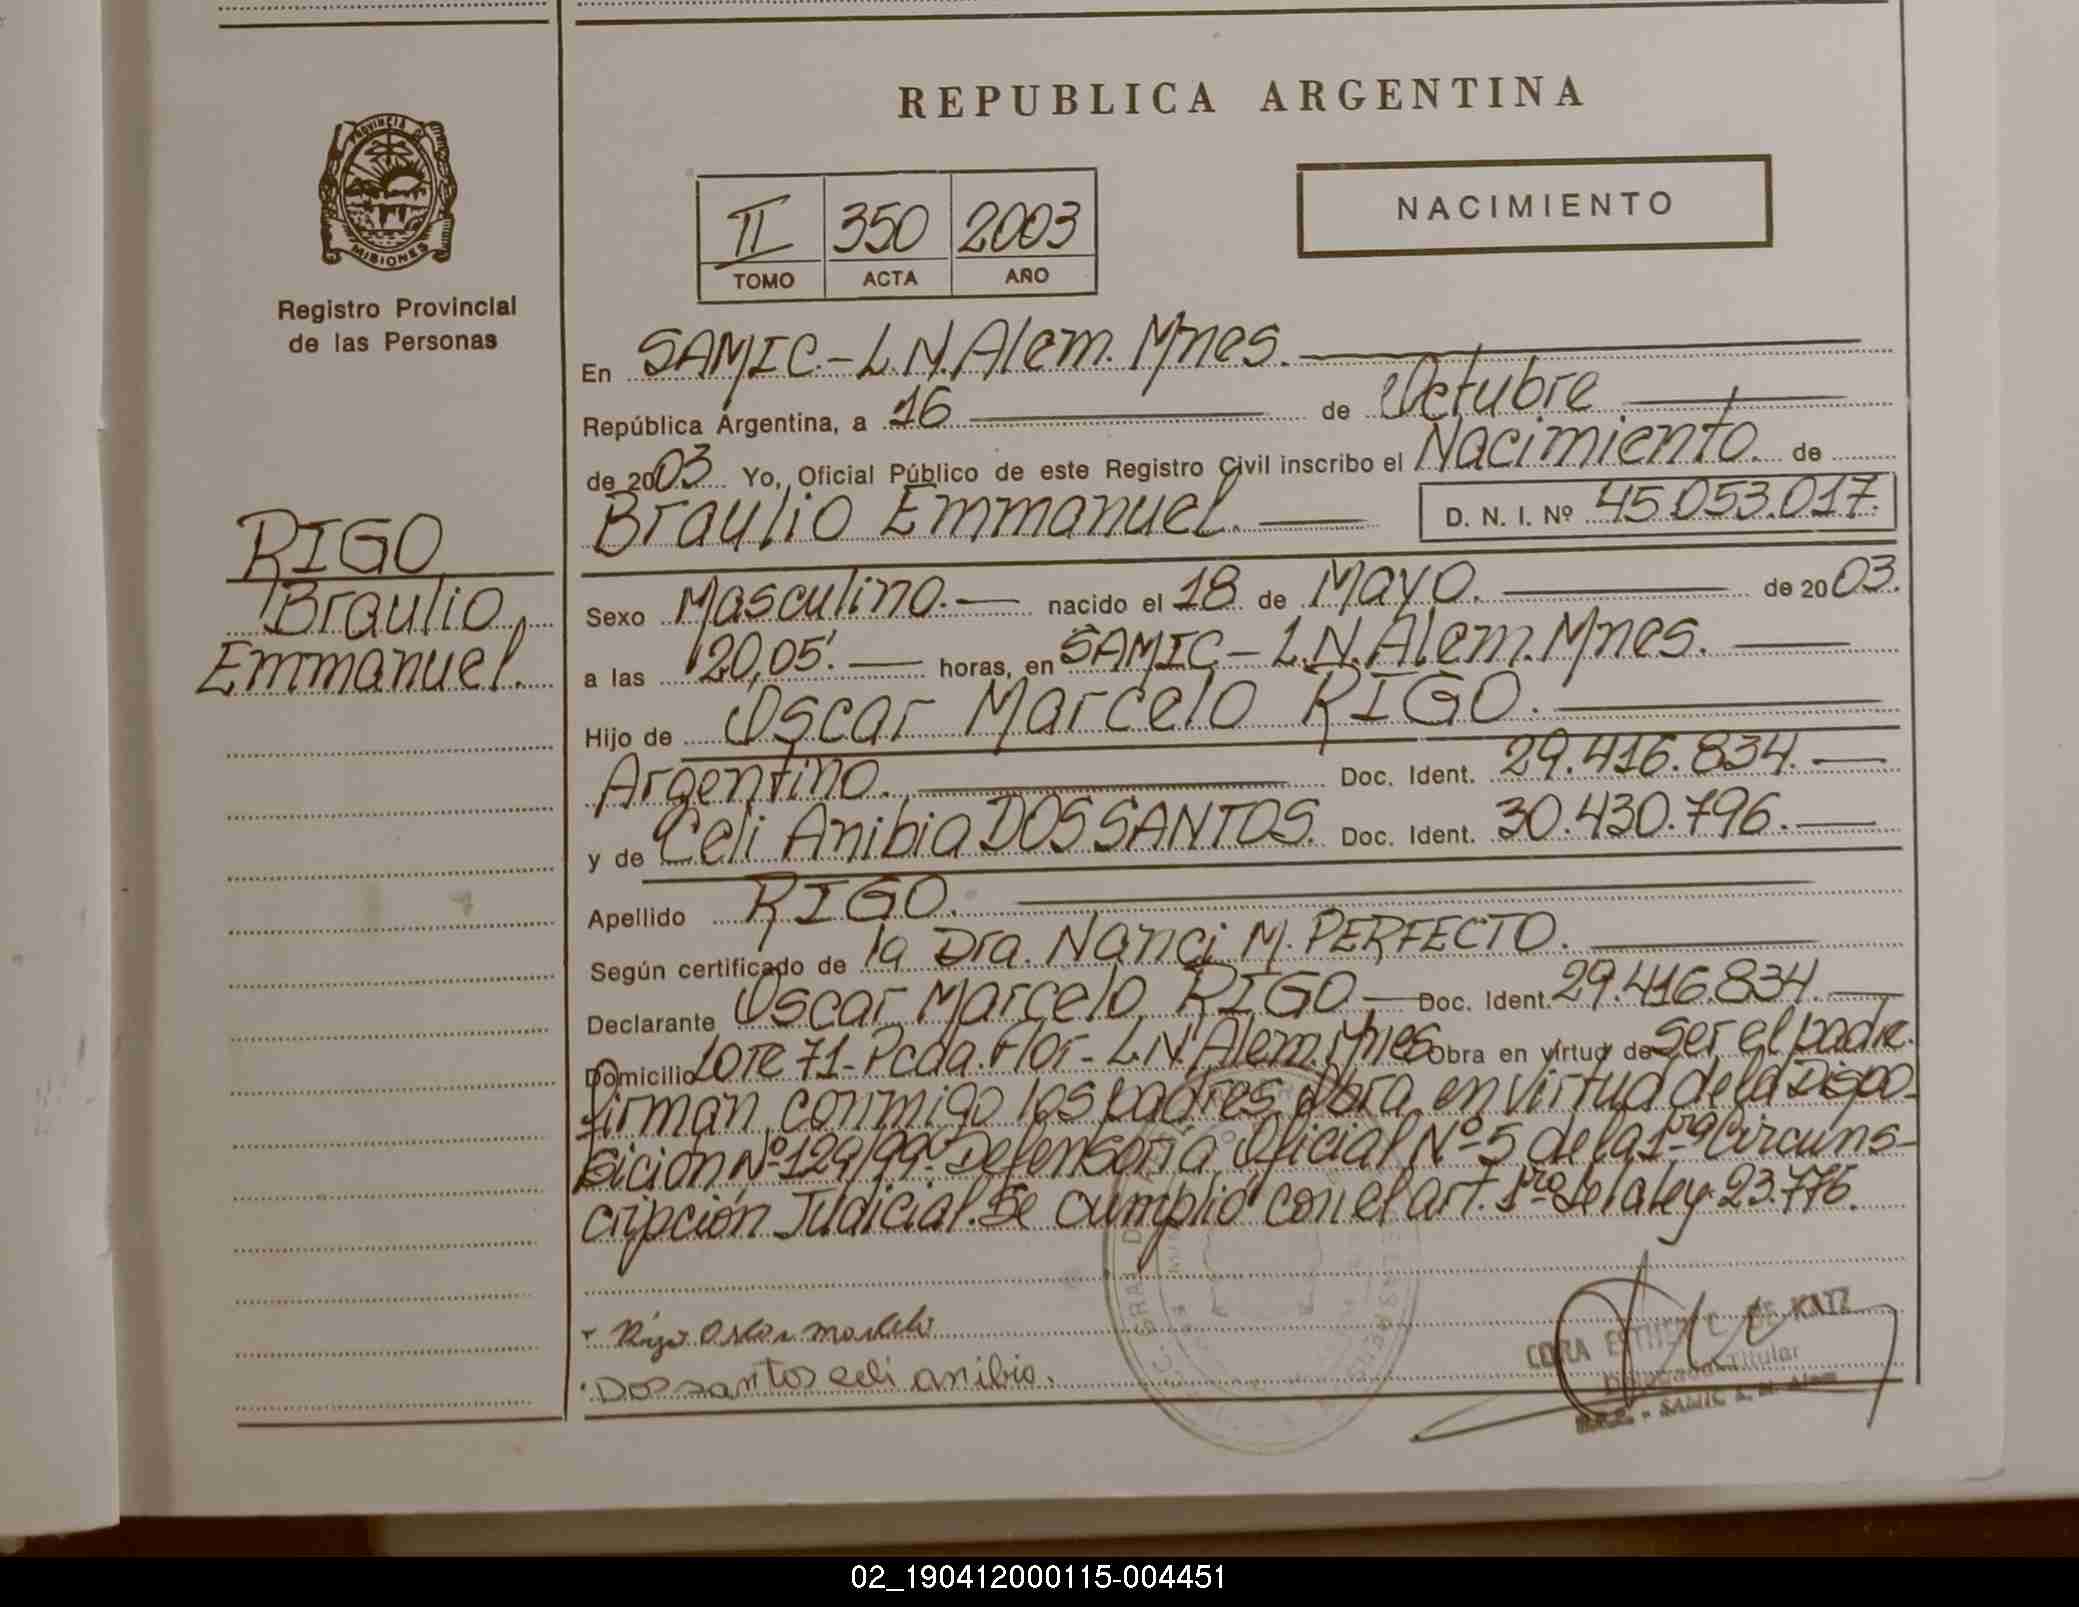 REPUBLICA ARGENTINA
PROVINCIA DE
MISIONES
Registro Provincial
de las Personas
II 350 2003
TOMO ACTA AÑO
NACIMIENTO
RIGO
Braulio
Emmanuel.
En SAMIC.- L.N.Alem. Mnes.
República Argentina, a 16 de Octubre
de 2003. Yo, Oficial Público de este Registro Civil inscribo el Nacimiento. de
Braulio Emmanuel. D. N. I. Nº 45.053.017.
Sexo Masculino.- nacido el 18 de Mayo. de 2003.
a las 20,05'. horas, en SAMIC.- L.N.Alem. Mnes.
Hijo de Oscar Marcelo RIGO.
Argentino. Doc. Ident. 29.416.834.
y de Celi Anibia DOS SANTOS. Doc. Ident. 30.430.796.
Apellido RIGO.
Según certificado de la Dra. Nanci M. PERFECTO.
Declarante Oscar Marcelo RIGO.- Doc. Ident. 29.416.834.
Domicilio LOTE 71- Pcda. Flor- L.N.Alem. Mnes Obra en virtud de ser el padre.
firman conmigo los padres. Obra en virtud de la Dispo-
sición Nº 129/99. Defensoría Oficial Nº 5 de la 1ra Circuns-
cripción Judicial. Se cumplió con el art. 1ro de la ley 23.776.
Rigo Oscar marcelo
Dos santos celi anibia.
CORA ESTHER C. DE KATZ
Titular
SAMIC L. N. Alem
02_190412000115-004451